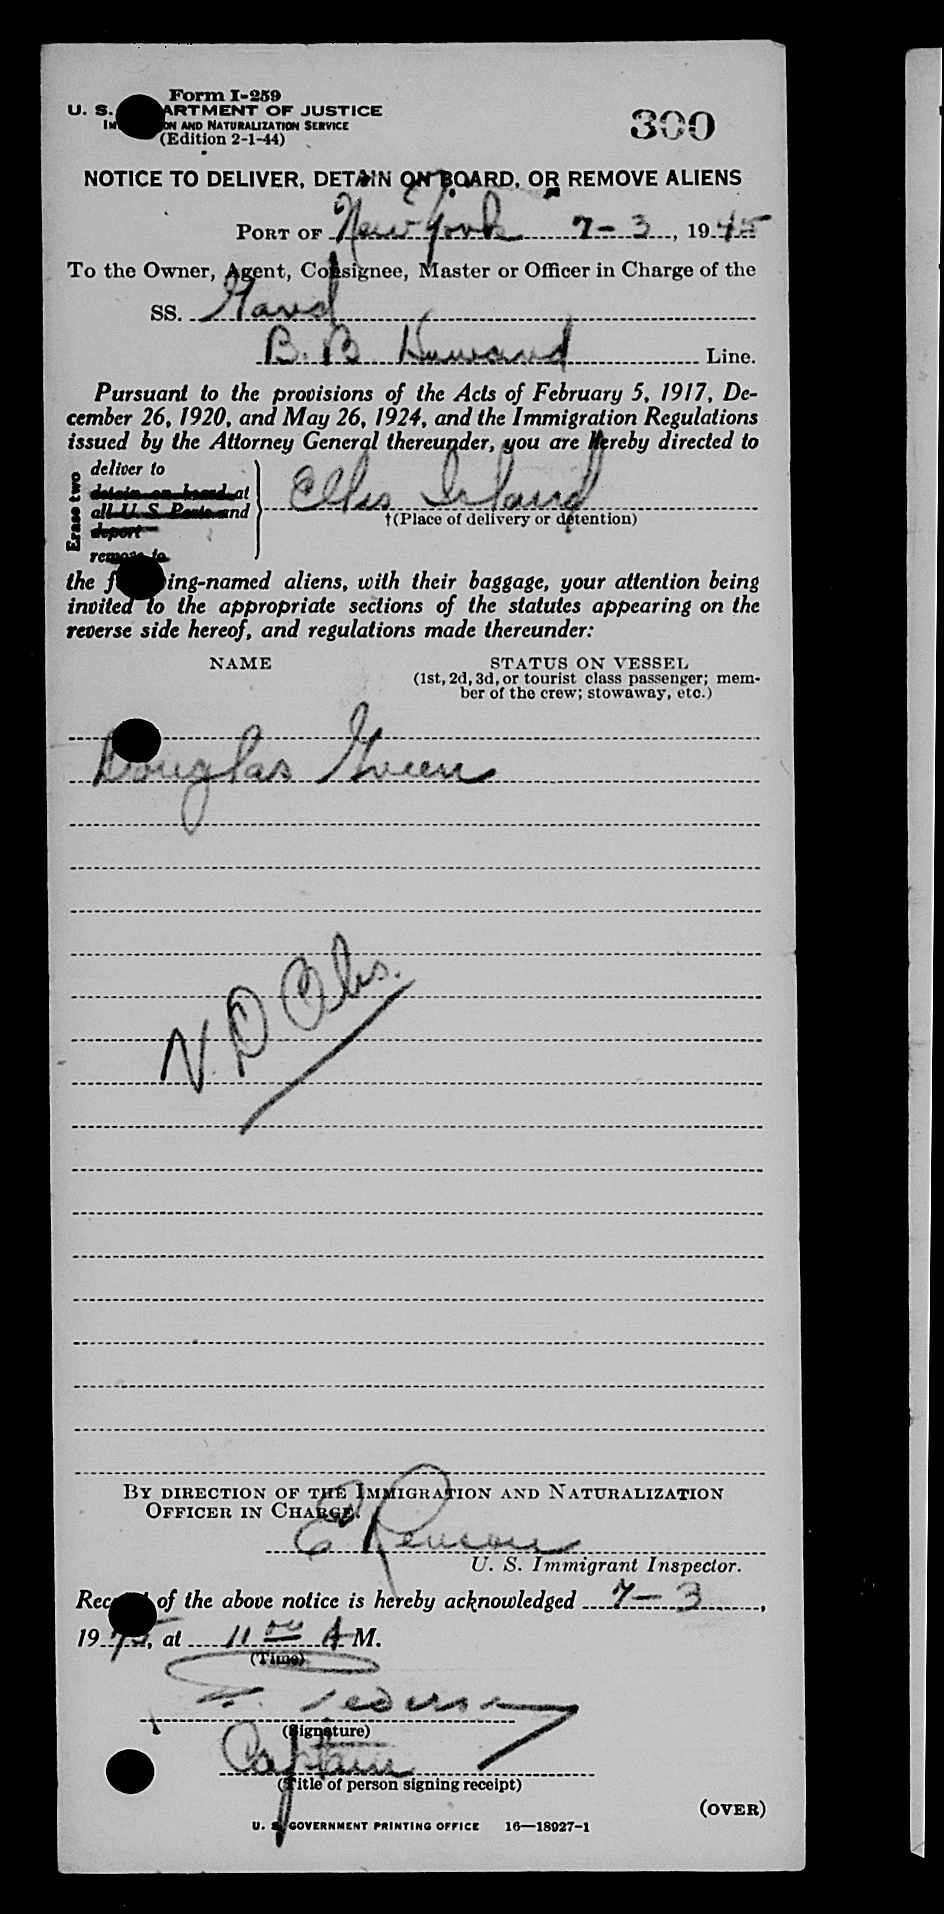 Form I-259
U. S. ARTMENT OF JUSTICE
ON AND NATURALIZATION SERVICE
(Edition 2-1-44)
300
NOTICE TO DELIVER, DETAIN ON BOARD, OR REMOVE ALIENS
PORT OF New York 7-3, 1945
To the Owner, Agent, Consignee, Master or Officer in Charge of the
SS.
B. B. Line.
Pursuant to the provisions of the Acts of February 5, 1917, De-
cember 26, 1920, and May 26, 1924, and the Immigration Regulations
issued by the Attorney General thereunder, you are hereby directed to
Erase two
deliver to
detain on board at
all U. S. Ports and
deport
remove to
Ellis Island
†(Place of delivery or detention)
the f ing-named aliens, with their baggage, your attention being
invited to the appropriate sections of the statutes appearing on the
reverse side hereof, and regulations made thereunder:
NAME STATUS ON VESSEL
(1st, 2d, 3d, or tourist class passenger; mem-
ber of the crew; stowaway, etc.)
Douglas Green
V. D Obs.
BY DIRECTION OF THE IMMIGRATION AND NATURALIZATION
OFFICER IN CHARGE.
E
U. S. Immigrant Inspector.
Rec of the above notice is hereby acknowledged 7-3,
1945, at 11 00 A M.
(Time)
(Signature)
Captain
(Title of person signing receipt)
(OVER)
U. S. GOVERNMENT PRINTING OFFICE 16—18927-1